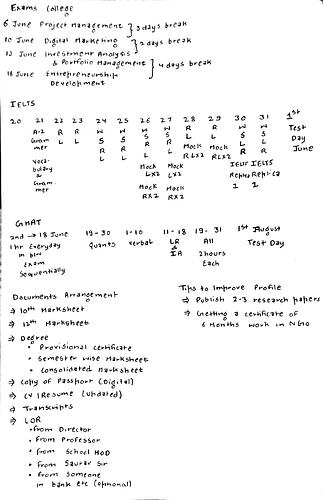 Exams College
6 June Project Management } 3 days break
10 June Digital Marketing } 2 days break
13 June Investment Analysis
& Portfolio Management } 4 days break
18 June Entrepreneurship
Development
IELTS
20 21 22 23 24 25 26 27 28 29 30 31 1st
A-Z R R W W W W R R W W Test
Gram L L S S S S L L S S Day
mer R R R Mock Mock L L June
L L L L RLX2 RLX2 R R
Voca- Mock Mock IELTS IELTS
bulary LX2 LX2 Replica
& Mock Mock 1 2
Gram- RX2 RX2
mer
GMAT
2nd → 18 June 19-30 1-10 11-18 19-31 1st August
1hr Everyday Quants Verbal LR All Test Day
in b/w & 2hours
Exam IA Each
Sequentially
Documents Arrangement
⇒ 10th Marksheet
⇒ 12th Marksheet
⇒ Degree
• Provisional certificate
• Semester wise Marksheet
• Consolidated Marksheet
⇒ Copy of Passport (Digital)
⇒ CV/Resume (Updated)
⇒ Transcripts
⇒ LOR
• From Director
• From Professor
• From School HOD
• From Saurav Sir
• From Someone
in bank etc (optional)
Tips to Improve Profile
⇒ Publish 2-3 research papers
⇒ Getting a certificate of
6 Months work in NGO